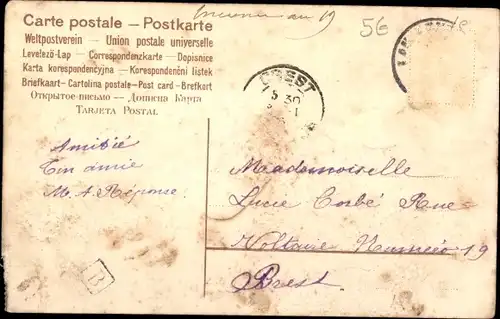 Carte postale — Postkarte
Weltpostverein — Union postale universelle
Levelező-Lap — Correspondenzkarte — Dopisnice
Karta korespondencyjna — Korespondenční lístek
Briefkaart — Cartolina postale — Post card — Brefkort
Открытое письмо — Дописна Карта
Tarjeta Postal
au 19
56
BREST
5 30
Amitié
Ton amie
M. A. Réponse
B
Mademoiselle
Lucie Corbé Rue
Voltaire Numéro 19
Brest